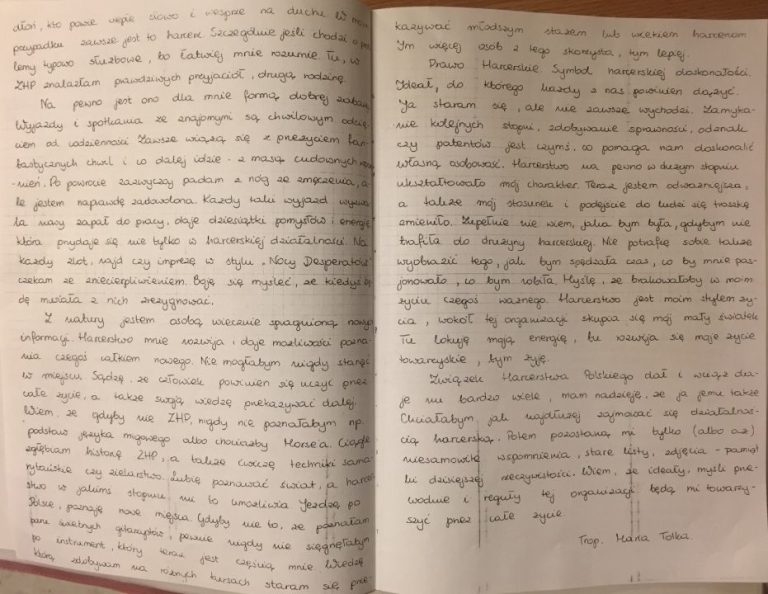 dłoń, kto powie ciepłe słowo i wesprze na duchu. W moim
przypadku zawsze jest to harcerz. Szczególnie jeśli chodzi o prob-
lemy typowo służbowe, bo łatwiej mnie rozumie. Tu, w
ZHP znalazłam prawdziwych przyjaciół, drugą rodzinę.
Na pewno jest ono dla mnie formą dobrej zabawy.
Wyjazdy i spotkania ze znajomymi są chwilowym oderwa-
niem od codzienności. Zawsze wiążą się z przeżyciem fan-
tastycznych chwil i co dalej idzie - z masą cudownych wspom-
nień. Po powrocie zazwyczaj padam z nóg ze zmęczenia, a-
le jestem naprawdę zadowolona. Każdy taki wyjazd wyzwa-
la nowy zapał do pracy, daje dziesiątki pomysłów i energię,
która przydaje się nie tylko w harcerskiej działalności. Na
każdy zlot, rajd czy imprezę w stylu „Nocy Desperatów"
czekam ze zniecierpliwieniem. Boję się myśleć, że kiedyś bę-
dę musiała z nich zrezygnować.
Z natury jestem osobą wiecznie spragnioną nowych
informacji. Harcerstwo mnie rozwija i daje możliwości pozna-
nia czegoś całkiem nowego. Nie mogłabym nigdy stanąć
w miejscu. Sądzę, że człowiek powinien się uczyć przez
całe życie, a także swoją wiedzę przekazywać dalej.
Wiem, że gdyby nie ZHP, nigdy nie poznałabym np.
podstaw języka migowego albo chociażby Morse'a. Ciągle
zgłębiam historię ZHP, a także ćwiczę techniki sama-
rytańskie czy zielarstwo. Lubię poznawać świat, a harcer-
stwo w jakimś stopniu mi to umożliwia. Jeżdżę po
Polsce, poznaję nowe miejsca. Gdyby nie to, że poznałam
parę świetnych gitarzystów, pewnie nigdy nie sięgnęłabym
po instrument, który teraz jest częścią mnie. Wiedzę
którą zdobywam na różnych kursach staram się prze-
kazywać młodszym stażem lub wiekiem harcerzom.
Im więcej osób z tego skorzysta, tym lepiej.
Prawo Harcerskie. Symbol harcerskiej doskonałości.
Ideał, do którego każdy z nas powinien dążyć.
Ja staram się, ale nie zawsze wychodzi. Zamyka-
nie kolejnych stopni, zdobywanie sprawności, odznak
czy patentów jest czymś, co pomaga nam doskonalić
własną osobowość. Harcerstwo na pewno w dużym stopniu
ukształtowało mój charakter. Teraz jestem odważniejsza,
a także mój stosunek i podejście do ludzi się troszkę
zmieniło. Zupełnie nie wiem, jaka bym była, gdybym nie
trafiła do drużyny harcerskiej. Nie potrafię sobie także
wyobrazić tego, jak bym spędzała czas, co by mnie pas-
jonowało, co bym robiła. Myślę, że brakowałoby w moim
życiu czegoś ważnego. Harcerstwo jest moim stylem ży-
cia, wokół tej organizacji skupia się mój mały światek.
Tu lokuję moją energię, tu rozwija się moje życie
towarzyskie, tym żyję.
Związek Harcerstwa Polskiego dał i wciąż da-
je mi bardzo wiele, mam nadzieję, że ja jemu także.
Chciałabym jak najdłużej zajmować się działalnoś-
cią harcerską. Potem pozostaną mi tylko (albo aż)
niesamowite wspomnienia, stare listy, zdjęcia - pamiąt-
ki dzisiejszej rzeczywistości. Wiem, że ideały, myśli prze-
wodnie i reguły tej organizacji będą mi towarzy-
szyć przez całe życie.
Trop. Maria Tolka.